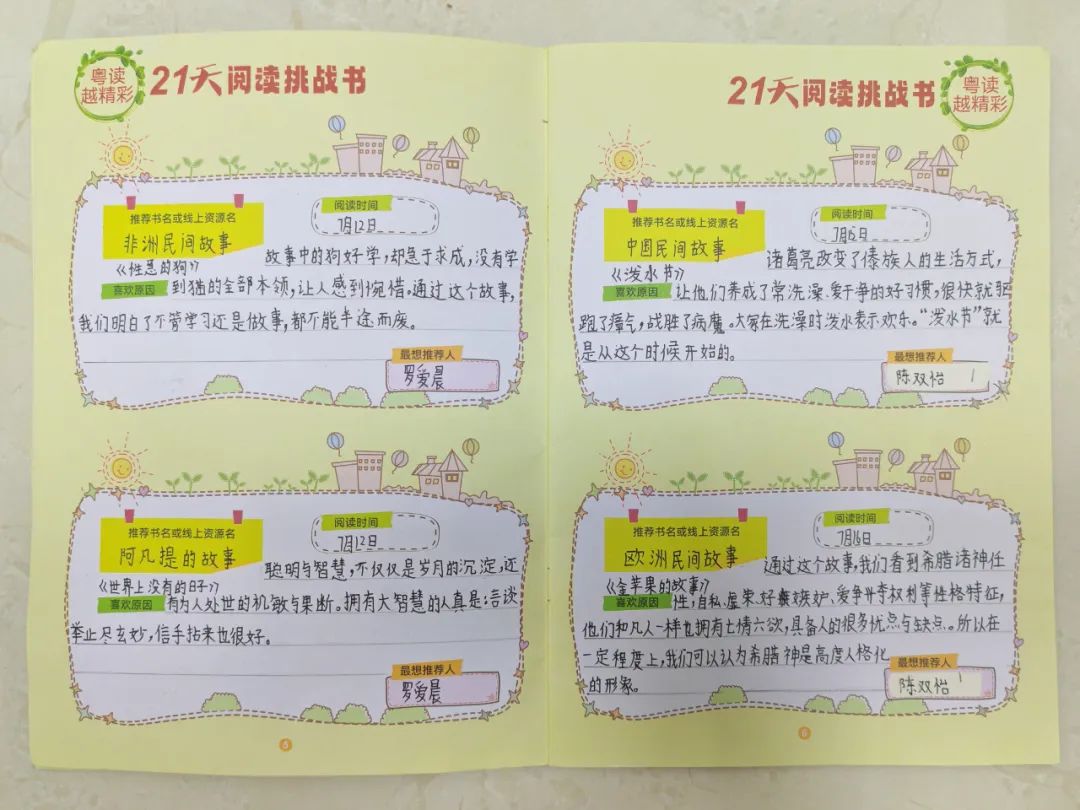 粤读
越精彩
21天阅读挑战书
推荐书名或线上资源名
阅读时间
非洲民间故事
7月12日
《性急的狗》
故事中的狗好学,却急于求成,没有学
喜欢原因
到猫的全部本领,让人感到惋惜。通过这个故事,
我们明白了不管学习还是做事,都不能半途而废。
最想推荐人
罗爱晨
推荐书名或线上资源名
阅读时间
阿凡提的故事
7月12日
《世界上没有的日子》
聪明与智慧,不仅仅是岁月的沉淀,还
喜欢原因
有为人处世的机敏与果断。拥有大智慧的人真是言谈
举止尽玄妙,信手拈来也很好。
最想推荐人
罗爱晨
5
21天阅读挑战书
粤读
越精彩
推荐书名或线上资源名
阅读时间
中国民间故事
7月15日
《泼水节》
诸葛亮改变了傣族人的生活方式,
喜欢原因
让他们养成了常洗澡、爱干净的好习惯,很快就驱
跑了瘴气,战胜了病魔。大家在洗澡时泼水表示欢乐。“泼水节”就
是从这个时候开始的。
最想推荐人
陈双怡
推荐书名或线上资源名
阅读时间
欧洲民间故事
7月16日
《金苹果的故事》
通过这个故事,我们看到希腊诸神任
喜欢原因
性,自私、虚荣、好嫉妒、爱争夺权利等性格特征,
他们和凡人一样也拥有七情六欲,具备人的很多优点与缺点。所以在
一定程度上,我们可以认为希腊神是高度人格化
的形象。
最想推荐人
陈双怡
6